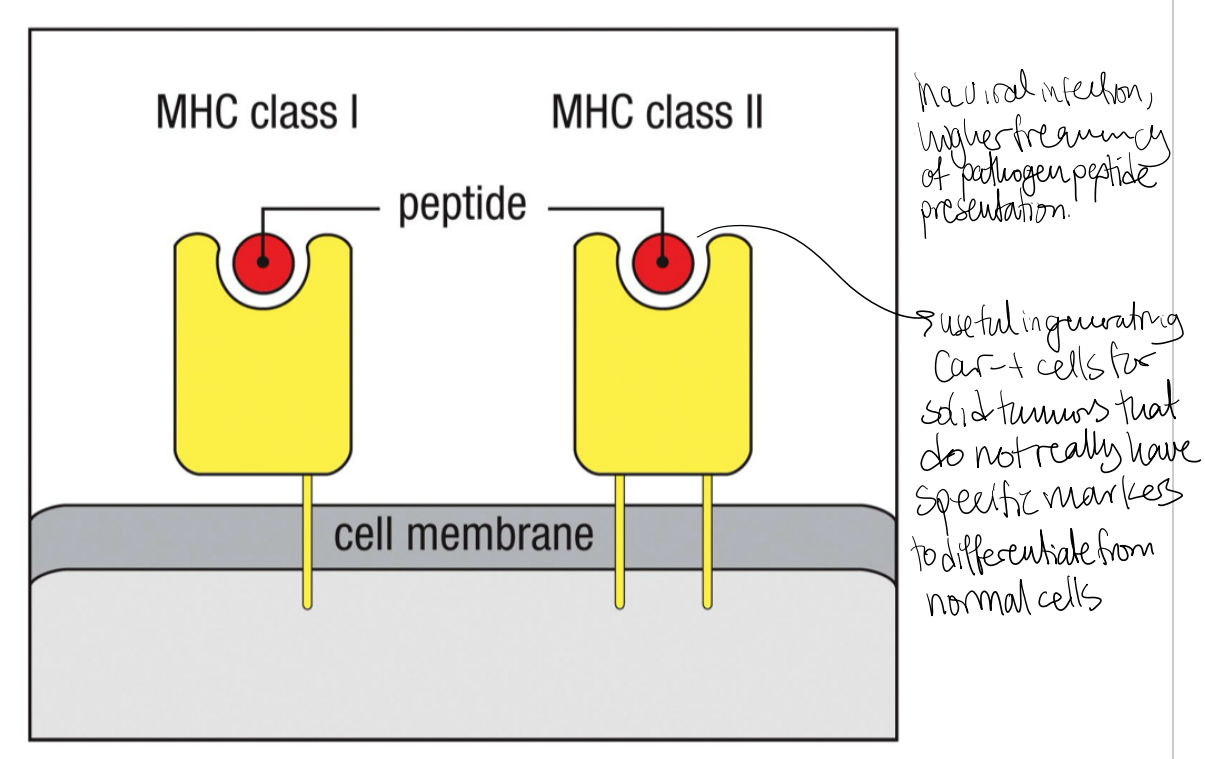 MHC class I
MHC class II
peptide
cell membrane
in a viral infection,
higher frequency
of pathogen peptide
presentation.
useful in generating
Car-t cells for
solid tumors that
do not really have
specific markers
to differentiate from
normal cells